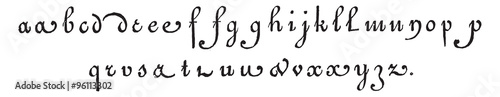 a a b c d d e e e f f g g h i j k l l m u n o p p
q r v s a t u u w d v x x y z z.
Adobe Stock | #96113302